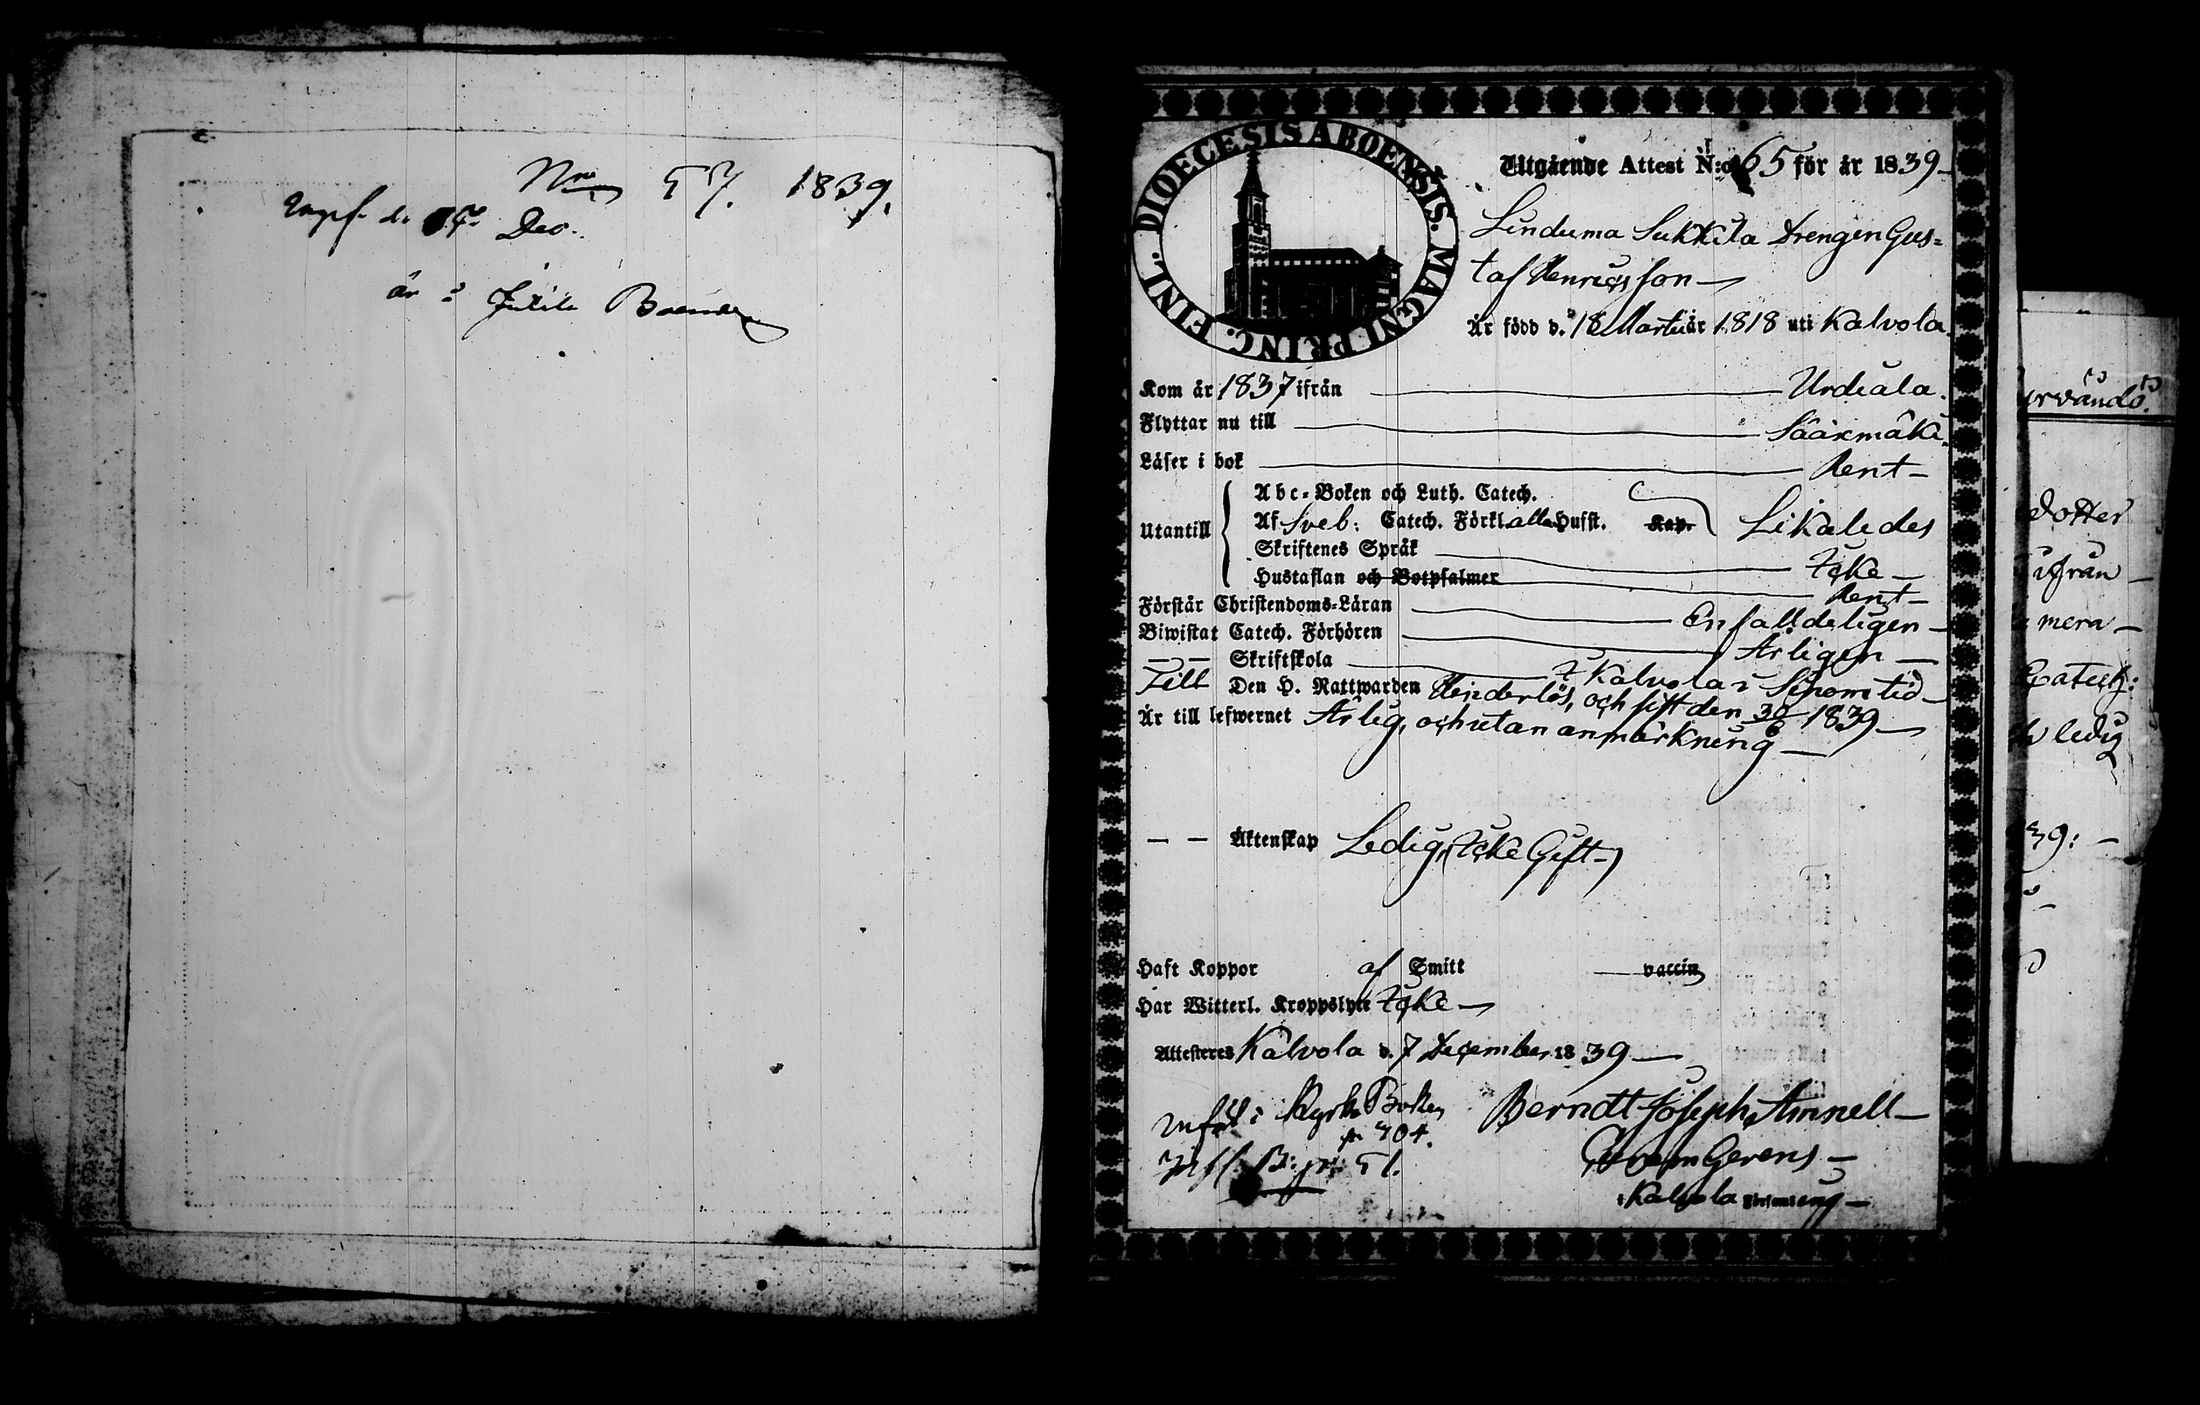 Nro 57. 1839.
Uppf. d. 14 Dec.
är i Jutila Boende
DIOECESIS ABOENSIS. MAGNI PRINC. FINL.
Utgående Attest N:o 65 för år 1839
Linduma Sukkila Drengen Gus=
taf Henricsson
Är född d. 18 Martii år 1818 uti Kalvola
Kom år 1837 ifrån Urdiala.
Flyttar nu till Sääxmäki
Läser i bok Rent
Abc-Boken och Luth. Catech.
Utantill Af Sveb: Catech. Förkl. alla Hufst. Kap. Likaledes
Skriftenes Språk Icke
Hustaflan och Botpsalmer Rent
Förstår Christendoms-Läran Enfalldeligen
Biwistat Catech. Förhören Årligen
— — Skriftskola i Kalvola i Sinom tid
Till Den H. Nattwarden Hinderlös, och sist den 30/6 1839
Är till lefwernet Ärlig, och utan anmärkning
— — Äktenskap Ledig, (Icke Gift)
Haft Koppor af Smitt vaccin
Har Witterl. Kroppslyte Icke
Attesteres Kalvola d. 7 December 1839
Berndt Joseph Amnell
Infd i KyrkoBoken
p 704.
Gerens
p: 51.
i Kalvola Församling
dotter
ifrån
mera
Catech:
ledig
39: